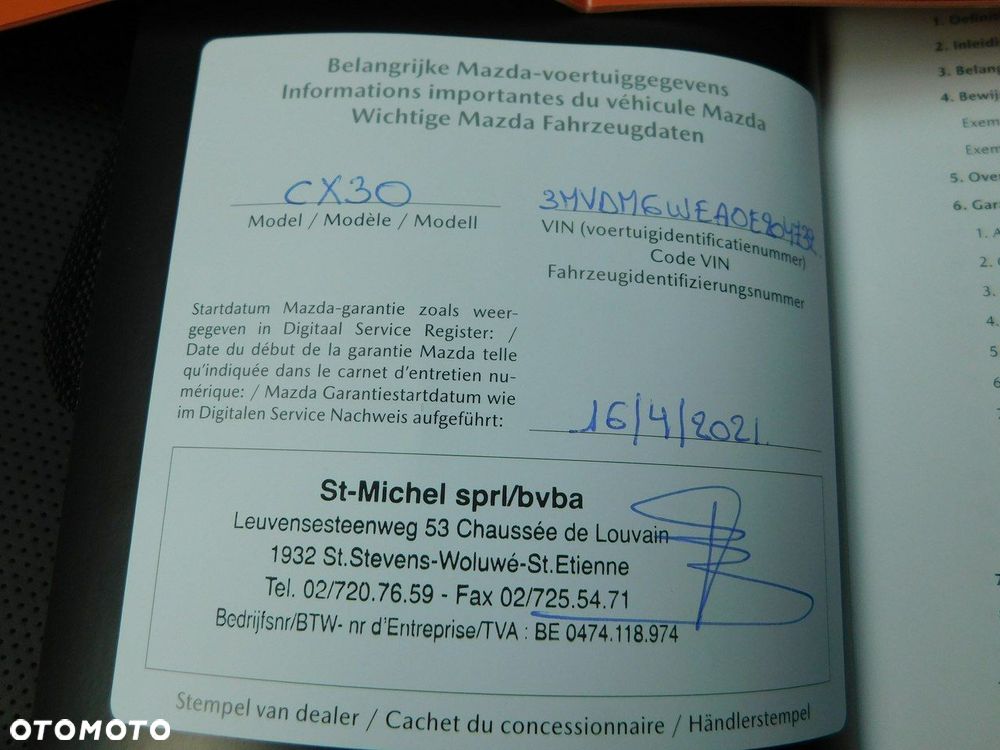 Belangrijke Mazda-voertuiggegevens
Informations importantes du véhicule Mazda
Wichtige Mazda Fahrzeugdaten
CX30
Model / Modèle / Modell
3MVDM6WEA0E204732
VIN (voertuigidentificatienummer)
Code VIN
Fahrzeugidentifizierungsnummer
Startdatum Mazda-garantie zoals weer-
gegeven in Digitaal Service Register: /
Date du début de la garantie Mazda telle
qu'indiquée dans le carnet d'entretien nu-
mérique: / Mazda Garantiestartdatum wie
im Digitalen Service Nachweis aufgeführt:
16/4/2021.
St-Michel sprl/bvba
Leuvensesteenweg 53 Chaussée de Louvain
1932 St.Stevens-Woluwé-St.Etienne
Tel. 02/720.76.59 - Fax 02/725.54.71
Bedrijfsnr/BTW- nr d'Entreprise/TVA : BE 0474.118.974
Stempel van dealer / Cachet du concessionnaire / Händlerstempel
1.
2. Inleidi
3. Belang
4. Bewij
Exem
Exem
5. Over
6. Gar
1. A
2.
3.
4.
5
6
7
OTOMOTO